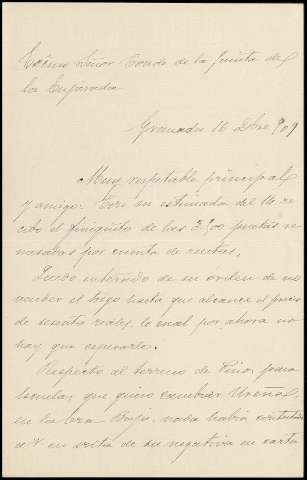 Exmo Señor Conde de la Quinta de
la Enjarada
Granada 16 Dbre 909
Muy respetable principal
y amigo: Con su estimada del 14 re-
cibo el finiquito de las pesetas re-
mesadas por cuenta de rentas.
Quedo enterado de su orden de no
vender el trigo hasta que alcance el precio
de sesenta reales, lo cual por ahora no
hay que esperarlo.
Respecto al terreno de para
escuelas que quiere cambiar Ureña,
en la era Baja, nada había contestado
a V en vista de su negativa en carta